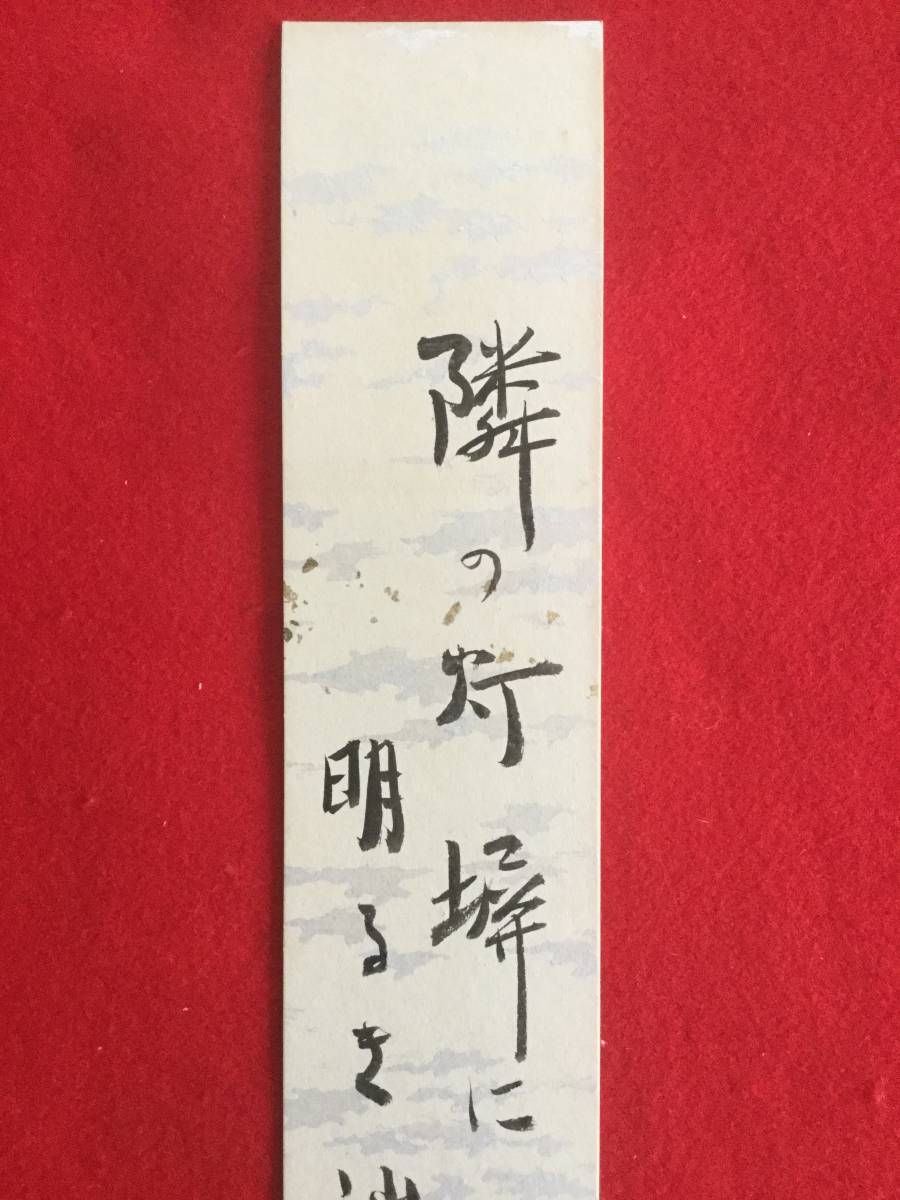 隣の灯塀に
明るき